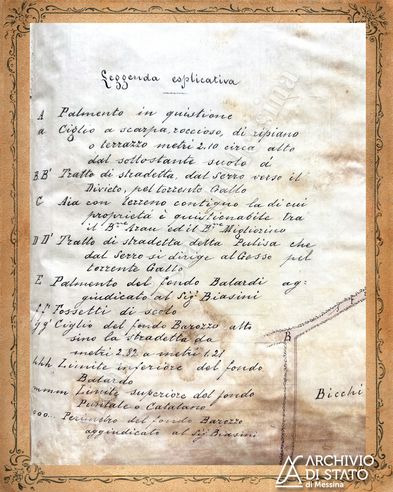 Leggenda esplicativa
A Palmento in quistione
a Ciglio a scarpa, roccioso, di ripiano
o terrazzo metri 2.10 circa alto
dal sottostante suolo d'
B B' Tratto di stradetta, dal Serro verso il
Divieto, pel torrente Gallo
C Aia con terreno contiguo la di cui
proprietà è quistionabile tra
il B.ne Arau ed il B.ne Migliorino
D D' Tratto di stradetta detta Pulisa che
dal Serro si dirige al Gesso pel
torrente Gallo
E Palmento del fondo Balardi ag-
giudicato al Sig. Biasini
ff' Fossetti di scolo
gg' Ciglio del fondo Barozzo alto
sino la stradetta da
metri 2.82 a metri 1.21
hhh Limite inferiore del fondo
Balardo
mmm Limite superiore del fondo
Puntale o Catalano
ooo... Perimetro del fondo Barozzo
aggiudicato al Sig. Biasini
B
Bicchi
ARCHIVIO
DI STATO
di Messina